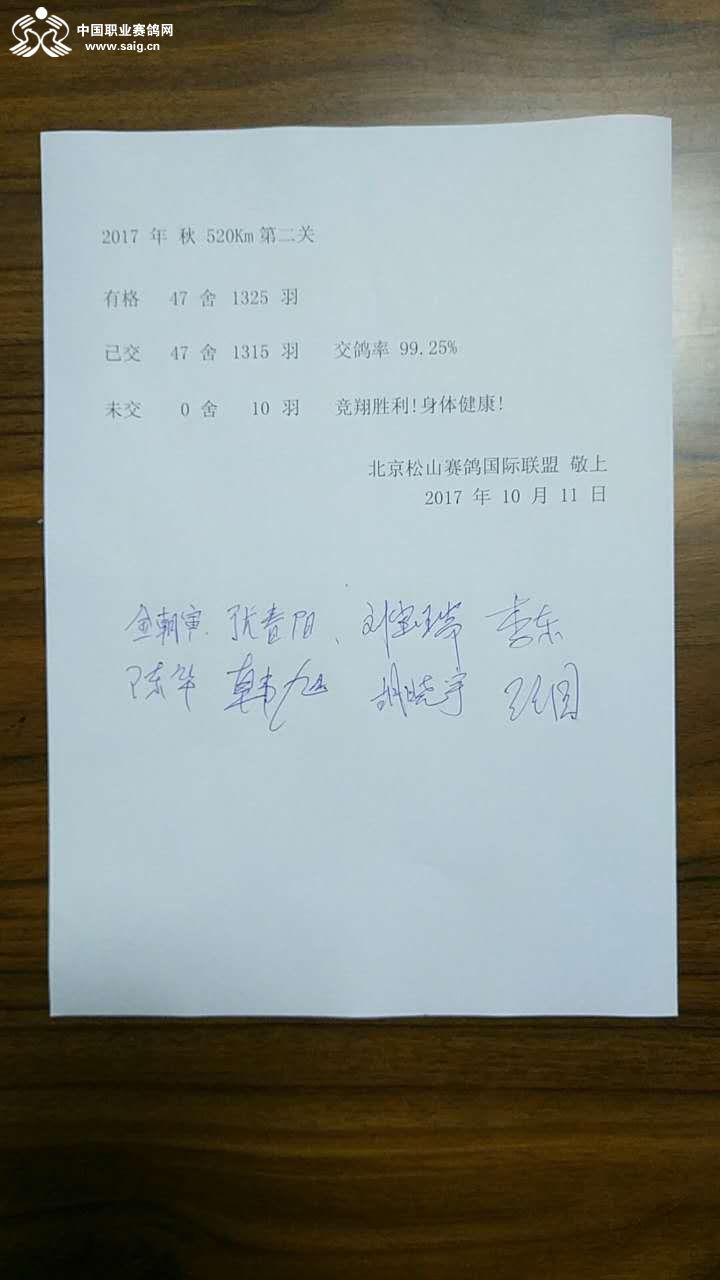 中国职业赛鸽网
www.saig.cn
2017 年 秋 520Km 第二关
有格 47 舍 1325 羽
已交 47 舍 1315 羽 交鸽率 99.25%
未交 0 舍 10 羽 竞翔胜利!身体健康!
北京松山赛鸽国际联盟 敬上
2017 年 10 月 11 日
金朝寅、张春阳、刘宝瑞 李东
陈华 韩旭 胡晓宇